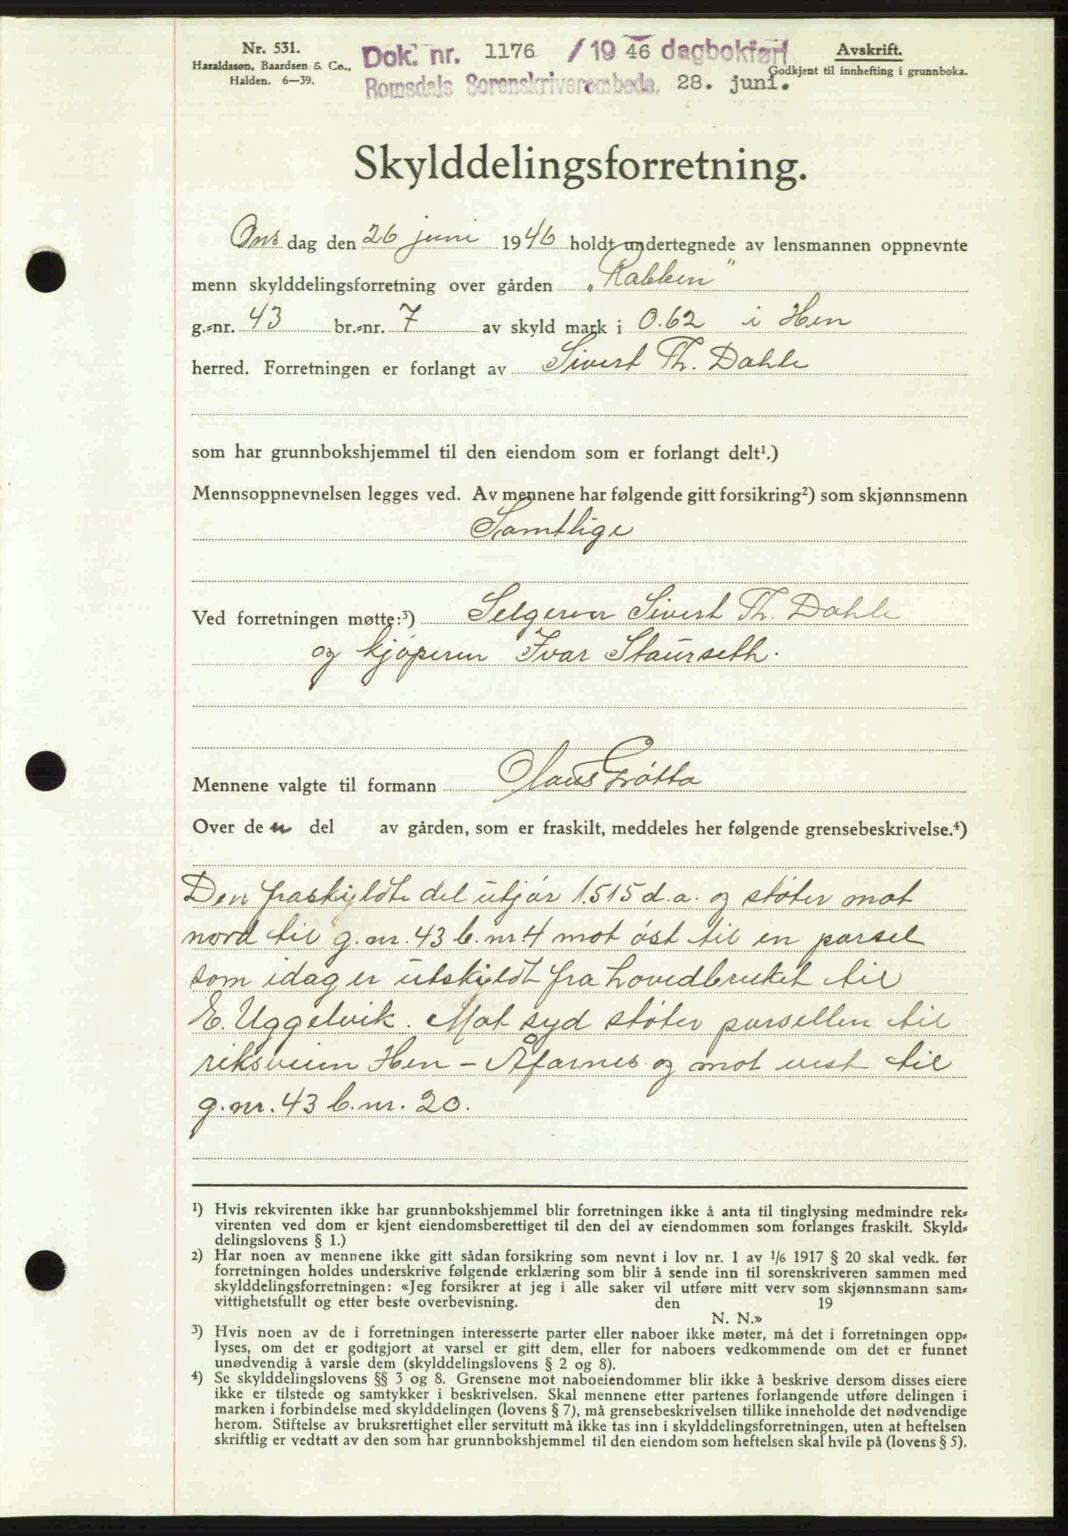 Nr. 531.
Haraldssøn, Baardsen & Co.,
Halden. 6—39.
Dok. nr. 1176 / 19 46 dagbokført
Romsdals Sorenskriverembede. 28. juni.
Avskrift.
Godkjent til innhefting i grunnboka.
Skylddelingsforretning.
Ons dag den 26 juni 1946 holdt undertegnede av lensmannen oppnevnte
menn skylddelingsforretning over gården „Rabben"
g.=nr. 43 br.=nr. 7 av skyld mark i 0.62 i Hen
herred. Forretningen er forlangt av Sivert Th. Dahle
som har grunnbokshjemmel til den eiendom som er forlangt delt¹.)
Mennsoppnevnelsen legges ved. Av mennene har følgende gitt forsikring²) som skjønnsmenn
Samtlige
Ved forretningen møtte:³) Selgeren Sivert Th. Dahle
og kjøperen Ivar Staurseth.
Mennene valgte til formann Claus Grøtta
Over de n del av gården, som er fraskilt, meddeles her følgende grensebeskrivelse.⁴)
Den fraskyldte del utjør 1.515 d.a. og støter mot
nord til g.nr. 43 b.nr 4 mot øst til en parsel
som idag er utskyldt fra hovedbruket til
E. Uggelvik. Mot syd støter parsellen til
riksveien Hen – Åfarnes og mot vest til
g.nr. 43 b.nr. 20.
¹) Hvis rekvirenten ikke har grunnbokshjemmel blir forretningen ikke å anta til tinglysing medmindre rek=
virenten ved dom er kjent eiendomsberettiget til den del av eiendommen som forlanges fraskilt. Skyld=
delingslovens § 1.)
²) Har noen av mennene ikke gitt sådan forsikring som nevnt i lov nr. 1 av ¹/₆ 1917 § 20 skal vedk. før
forretningen holdes underskrive følgende erklæring som blir å sende inn til sorenskriveren sammen med
skylddelingsforretningen: «Jeg forsikrer at jeg i alle saker vil utføre mitt verv som skjønnsmann sam=
vittighetsfullt og etter beste overbevisning. den 19
N. N.»
³) Hvis noen av de i forretningen interesserte parter eller naboer ikke møter, må det i forretningen opp=
lyses, om det er godtgjort at varsel er gitt dem, eller for naboers vedkommende om det er funnet
unødvendig å varsle dem (skylddelingslovens § 2 og 8).
⁴) Se skylddelingslovens §§ 3 og 8. Grensene mot naboeiendommer blir ikke å beskrive dersom disses eiere
ikke er tilstede og samtykker i beskrivelsen. Skal mennene etter partenes forlangende utføre delingen i
marken i forbindelse med skylddelingen (lovens § 7), må grensebeskrivelsen tillike inneholde det nødvendige
herom. Stiftelse av bruksrettighet eller servitutt må ikke tas inn i skylddelingsforretningen, uten at heftelsen
skriftlig er vedtatt av den som har grunnbokshjemmel til den eiendom som heftelsen skal hvile på (lovens § 5).